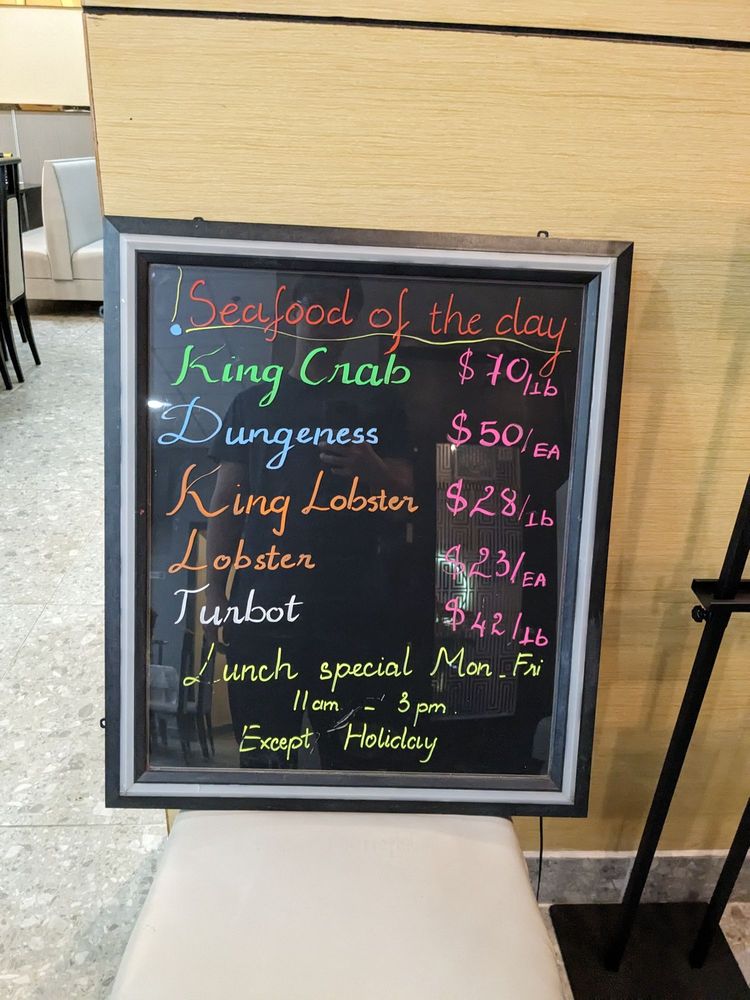 ! Seafood of the day
King Crab $70/Lb
Dungeness $50/EA
King Lobster $28/Lb
Lobster $23/EA
Turbot $42/Lb
Lunch special Mon - Fri
11am - 3pm.
Except Holiday